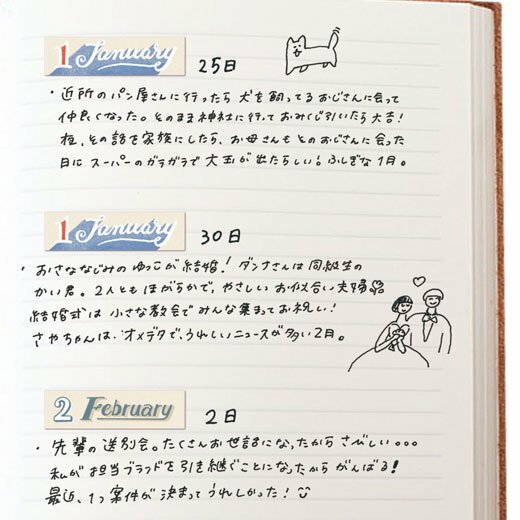 1 January 25日
・近所のパン屋さんに行ったら犬を飼ってるおじさんに会って
仲良くなった。そのまま神社に行っておみくじ引いたら大吉！
夜、その話を家族にしたら、お母さんもそのおじさんに会った
日にスーパーのガラガラで大玉が出たらしい！ふしぎな1月。
1 January 30日
・おさななじみのゆっこが結婚！ダンナさんは同級生の
かい君。2人ともほがらかで、やさしいお似合い夫婦
結婚式は小さな教会でみんな集まってお祝い！
さやちゃんは、オメデタで、うれしいニュースが多い2月。
2 February 2日
・先輩の送別会。たくさんお世話になったからさびしい…
私がお担当ブランドを引き継ぐことになったからがんばる！
最近、1つ案件が決まってうれしかった！